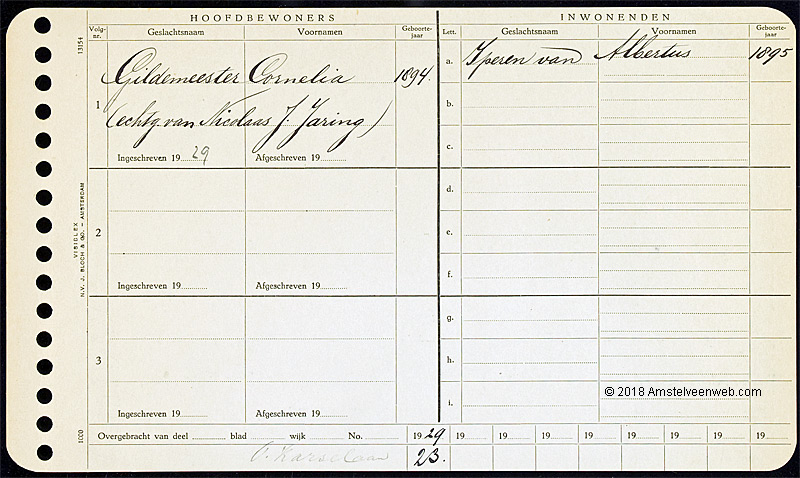 HOOFDBEWONERS
INWONENDEN
Volg-
nr.
Geslachtsnaam
Voornamen
Geboorte-
jaar
Lett.
Geslachtsnaam
Voornamen
Geboorte-
jaar
1
Gildemeester Cornelia 1894.
(echtg. van Nicolaas J. Jaring)
Ingeschreven 1929
Afgeschreven 19
2
Ingeschreven 19
Afgeschreven 19
3
Ingeschreven 19
Afgeschreven 19
a. Yperen van Albertus 1895
b.
c.
d.
e.
f.
g.
h.
i.
© 2018 Amstelveenweb.com
Overgebracht van deel blad wijk No. 1929 19 19 19 19 19 19 19 19
O. Karselaan 23.
13154
VISIBLEX
N.V. J. BLOCH & Co. – AMSTERDAM
1000